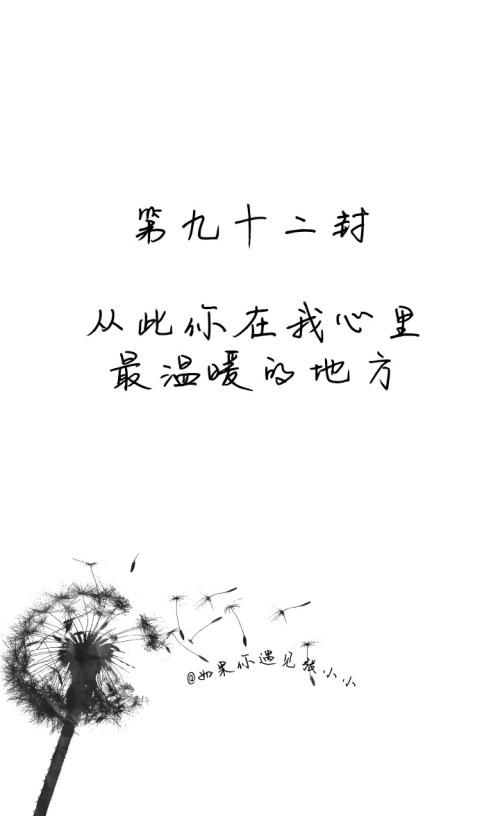 第九十二封
从此你在我心里
最温暖的地方
@如果你遇见张小小